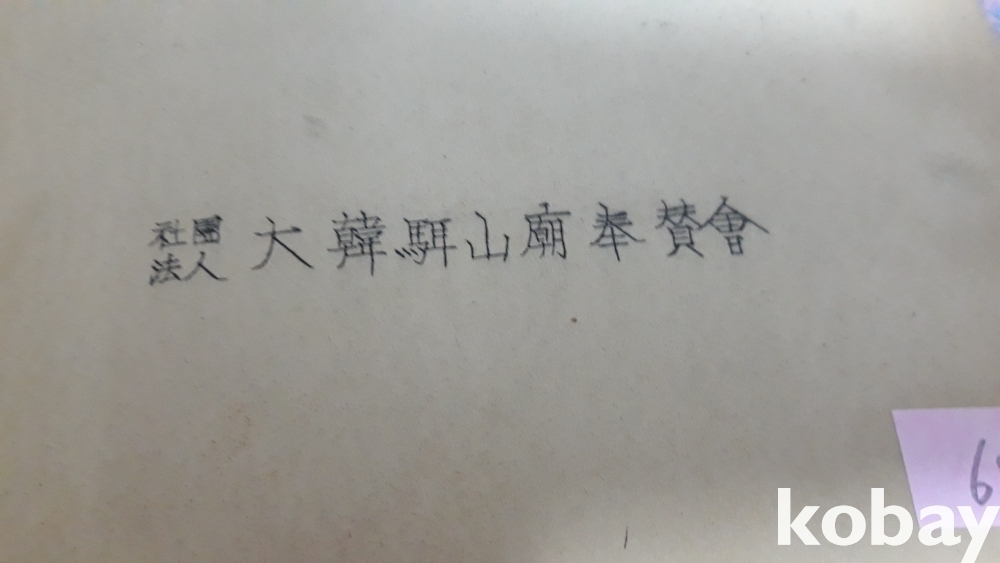 社團法人 大韓駬山廟奉賛會
6
kobay